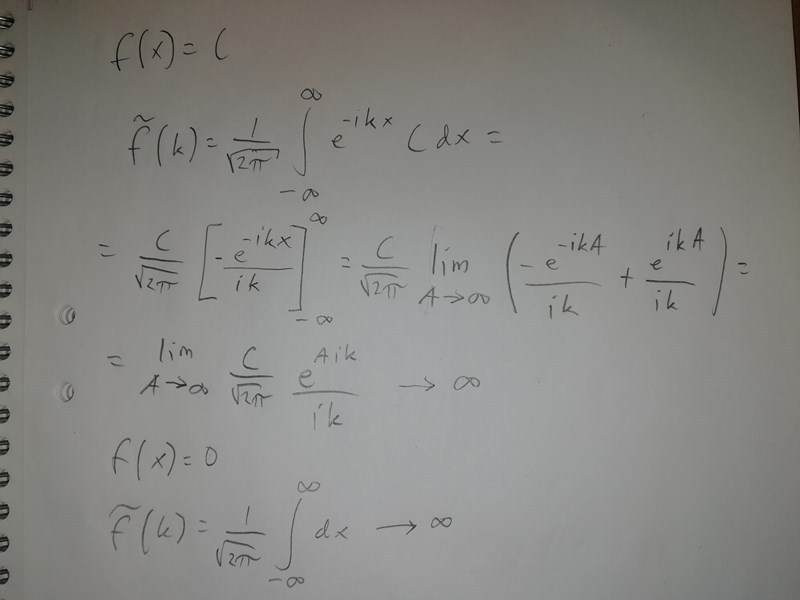 f(x) = C
f̃(k) = 1/√2π ∫_{-∞}^{∞} e^{-ikx} C dx =
= C/√2π [-e^{-ikx}/ik]_{-∞}^{∞} = C/√2π lim_{A→∞} (-e^{-ikA}/ik + e^{ikA}/ik) =
= lim_{A→∞} C/√2π e^{Aik}/ik → ∞
f(x) = 0
f̃(k) = 1/√2π ∫_{-∞}^{∞} dx → ∞